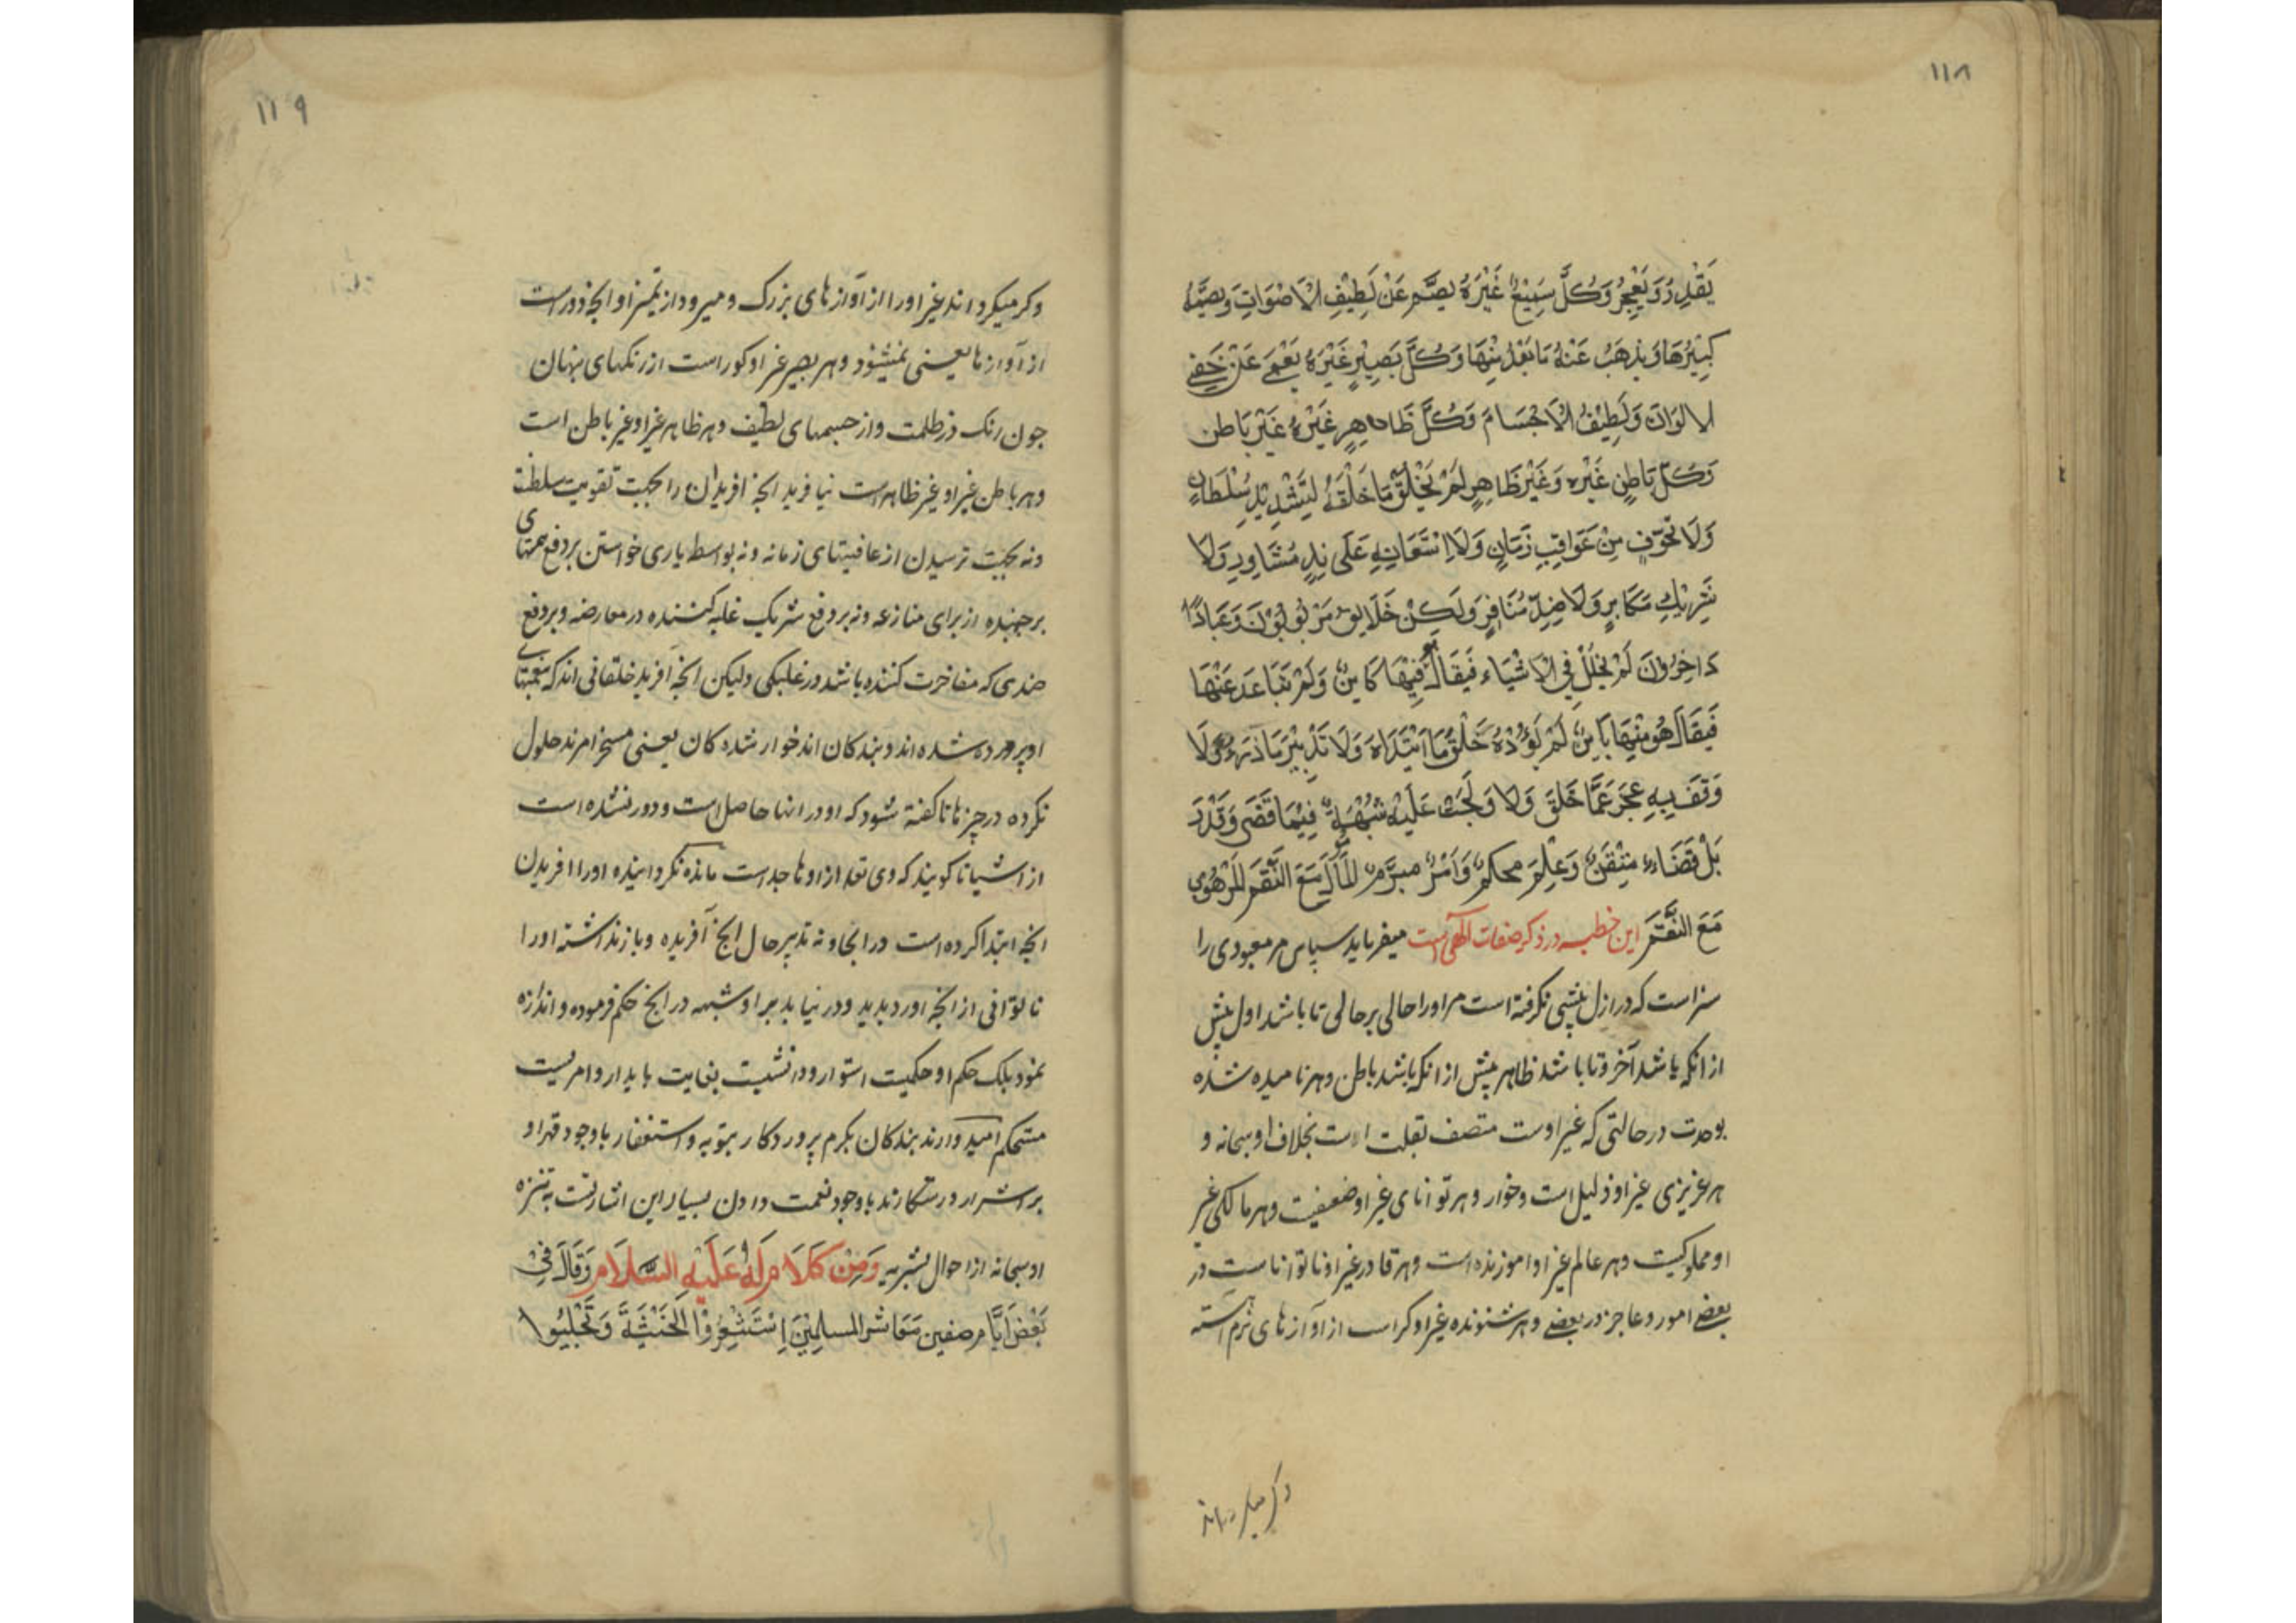 ۱۱۸
یَقْدِرُ وَیَعْجِزُ وَکُلُّ سَمِیْعٍ غَیْرَهُ یَصَمُّ عَنْ لَطِیْفِ الْاَصْوَاتِ وَیصمُّهُ
کَبِیْرُهَا وَیَذهَبُ عَنْهُ مَا بَعُدَ مِنْهَا وَکُلُّ بَصِیْرٍ غَیْرَهُ یَعْمٰی عَنْ خَفِیِّ
الالوَانِ وَلَطِیْفُ الْاَجْسَامَ وَکُلُّ ظَاهِرٍ غَیْرَهُ غَیْرُ بَاطن
وَکُلُّ بَاطِنٍ غَیْره وَغَیْرُ ظَاهِرٍ لَمْ یَخْلُقْ مَا خَلَقَهُ لِتَشْدِیْدِ سُلْطَانٍ
وَلَا تَخَوّفٍ مِنْ عَوَاقِبِ زَمَانٍ وَلَا اسْتَعَانِهِ عَلَی نِدٍ مُشَاوِرٍ وَلَا
شَرِیْكٍ مَکَابِرٍ وَلَا ضِدٍّ مُنَافِرٍ وَلَکِنْ خَلَایِقُ مَرْبُوْبُوْنَ وَعِبَادًا
دَاخِرُوْنَ لَمْ یَحْلُلْ فِی الْاَشْیَاء فَیُقَالَ فِیْهَا کَایِنٌ وَلَمْ یَتَبَاعَدَ عَنْهَا
فَیُقَالَ هُوَ مِنْهَا بَایِنٌ لَمْ یَؤُدْهُ خَلْقُ مَا ابْتَدَاَهُ وَلَا تَدْبِیْرُ مَا ذَرَءَ وَلَا
وَقَفَ بِهِ عَجزٌ عَمَّا خَلَقَ وَلا وَلَجَتْ عَلَیْهِ شُبْهَةٌ فِیْمَا قَضٰی وَقَدَّرَ
بَلْ قَضَاء مُتْقَنٌ وَعِلْمٌ محکمٌ وَاَمْرٌ مبرَّمٌ المَاْمُوْلُ مَعَ النِّقَمِ المَرْهُوْبُ
مَعَ النِّعَمَ این خطبه در ذکر صفات الهی است میفرماید سپاس مر معبودی را
سزاست که در ازل پیشی نکرفته است مر اورا حالی بر حالی تا باشد اول پیش
از انکه باشد آخر و تا باشد ظاهر پیش از انکه باشد باطن و هر نامیده شده
بوحدت در حالتی که غیر اوست متصف بقلت است بخلاف او سبحانه و
هر عزیزی غیر او ذلیل است و خوار و هر توانای غیر او ضعیفیت و هر مالکی غیر
او مملوکیت و هر عالم غیر او اموزنده است و هر قادر غیر او نا تواناست در
بعضے امور و عاجز در بعضے و هر شنونده غیر او کر است از آوازهای نرم اهسته
و کر میکرداند
۱۱۹
و کر میکرداند غیر اورا از آوازهای بزرک و میرود از تمیز او انچه دور است
از آوازها یعنی نمیشنود و هر بصیر غیر او کور است از رنکهای پنهان
جون رنک در ظلمت و از جسمهای لطیف و هر ظاهر غیر او غیر باطن است
و هر باطن غیر او غیر ظاهر است نیافرید انچه افرید ان را بجهت تقویت سلطنت
و نه بجهت ترسیدن از عاقبتهای زمانه و نه بواسطه یاری خواستن بر دفع همتهای
بر جهنده از برای منازعه و نه بر دفع شریک غلبه کننده در معارضه و بر دفع
ضدی که مفاخرت کننده باشد در غلبکی ولیکن انچه آفرید خلقانی اند که بنعمتهای
او پرورده شده اند و بندکان اند خوار شده کان یعنی مسخر امرند حلول
نکرده در چیزها تا کفته شود که او در انها حاصل است و دور نشده است
از اشیا تا کویند که وی تعه از اوها جداست مانده نکردانیده اورا افریدن
انچه ابتدا کرده است در انجا و نه تدبیر حال انچ آفریده و باز نداشته اورا
ناتوانی از انچه آورد بدید و در نیاید بر او شبهه در انچ حکم فرموده و اندازه
نمود بلک حکم او حکمیت استوار و دانشیت بغایت پایدار و امریست
مستحکم امید دارند بندکان بکرم پروردکار بتوبه و استغفار با وجود قهر او
بر اشرار و رستکارند با وجود نعمت دادن بسیار این اشارتست به تنزه
او سبحانه از احوال بشریه وَمِنْ کَلَامٍ لَهُ عَلَیْهِ السَّلَامُ وَقَالَ فِیْ
بَعْضِ اَیَّامِ صفین مَعَاشرَ المسلِمِیْنَ اِسْتَشْعِرُوْا الْخَشْیَةَ وَتَجَلْبَبُوا